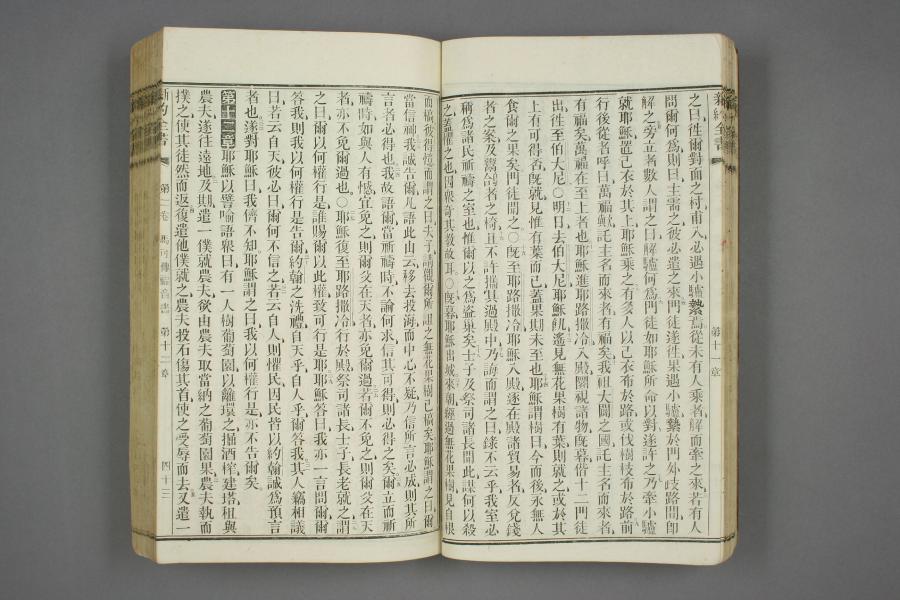 新約全書
第十一章
之曰、徃爾對面之村、甫入、必遇小驢縶焉、從未有人乘者、解而牽之來、若有人
問爾何爲、則曰、主需之、彼必遣之來、門徒遂徃、果遇小驢縶於門外歧路間、卽
解之、旁立者數人謂之曰、解驢何爲、門徒如耶穌所命以對、遂許之、乃牽小驢
就耶穌、置己衣於其上、耶穌乘之、有多人以己衣布於路、或伐樹枝布於路、前
行後從者呼曰、萬福歟、託主名而來者有福矣、我祖大闢之國、託主名而來者、
有福矣、萬福在至上者也、耶穌進耶路撒冷、入殿、關視諸物、旣暮、偕十二門徒
出、徃至伯大尼、○明日去伯大尼、耶穌飢、遙見無花果樹有葉、則就之、或於其
上有可得否、旣就、見惟有葉而已、蓋果期未至也、耶穌謂樹曰、今而後永無人
食爾之果矣、門徒聞之、○旣至耶路撒冷、耶穌入殿、逐在殿諸貿易者、反兌錢
者之案、及鬻鴿者之椅、且不許攜具過殿中、乃誨而謂之曰、錄不云乎、我室必
稱爲諸民祈禱之室也、惟爾以之爲盜巢矣、士子及祭司諸長聞此、謀何以殺
之、蓋懼之也、因衆奇其敎故耳、○旣暮、耶穌出城、來朝、經過無花果樹、見自根
而槁、彼得憶而謂之曰、夫子、請觀爾所詛之無花果樹已槁矣、耶穌謂之曰、爾
當信神、我誠告爾、凡語此山云、移去投海、而中心不疑、乃信所言必成、則其所
言者必得也、我故語爾、當祈禱時、不論何求、信其可得、則必得之矣、爾立而祈
禱時、如與人有憾、宜免之、則爾父在天者、亦免爾過、若爾不免之、則爾父在天
者、亦不免爾過也、○耶穌復至耶路撒冷、行於殿、祭司諸長士子長老就之、謂
之曰、爾以何權行是、誰賜爾以此權、致可行是耶、耶穌答曰、我亦一言問爾、爾
答我、則我以何權行是告爾、約翰之洗禮、自天乎、自人乎、爾答我、其人竊相議
曰、若云自天、彼必曰、爾何不信之、若云自人、則懼民、因民皆以約翰誠爲預言
者也、遂對耶穌曰、我儕不知、耶穌謂之曰、我以何權行是、亦不告爾矣、
第十二章 耶穌以譬喻語衆曰、有一人樹葡萄園、以籬環之、掘酒榨、建塔、租與
農夫、遂往遠地、及期、遣一僕就農夫、欲由農夫取當納之葡萄園果、農夫執而
撲之、使其徒然而返、復遣他僕就之、農夫投石傷其首、使之受辱而去、又遣一
新約全書
第二卷 馬可傳福音書 第十二章
四十三